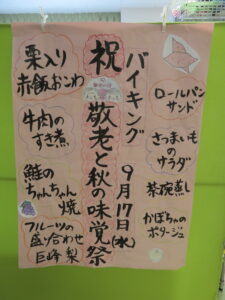 バイキング
祝 敬老と秋の味覚祭
9月17日(水)
ロールパン
サンド
さつまいも
の
サラダ
茶碗蒸し
かぼちゃの
ポタージュ
栗入り
赤飯おこわ
牛肉の
すき煮
鮭の
ちゃんちゃん
焼
フルーツの
盛り合わせ
巨峰 梨